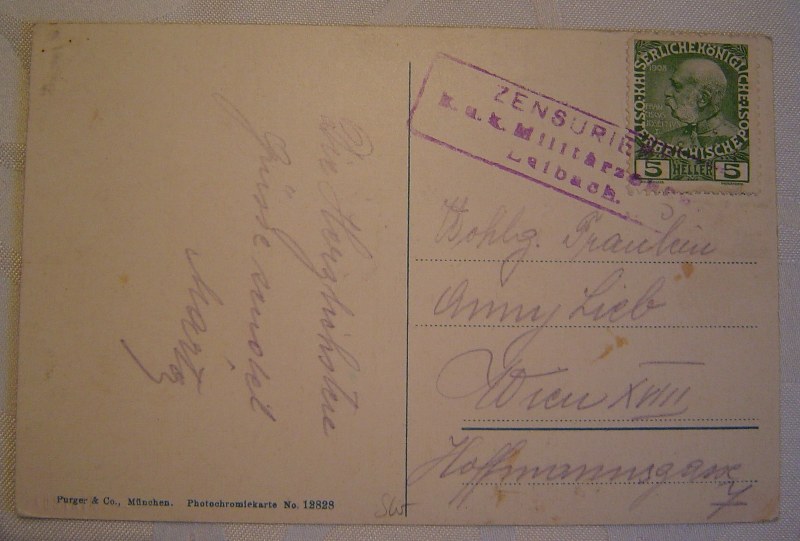 Die Herzlichsten
Grüsse sendet
Purger & Co., München. Photochromiekarte No. 12828
SW
ZENSURIE
k. u. k. Militärzens
Laibach.
KAISERLICHE KÖNIGLICHE
ÖSTERREICHISCHE POST
1908
5 HELLER 5
Wohlg. Fräulein
Anny Lieb
Wien XVIII
Hoffmannsgasse
7